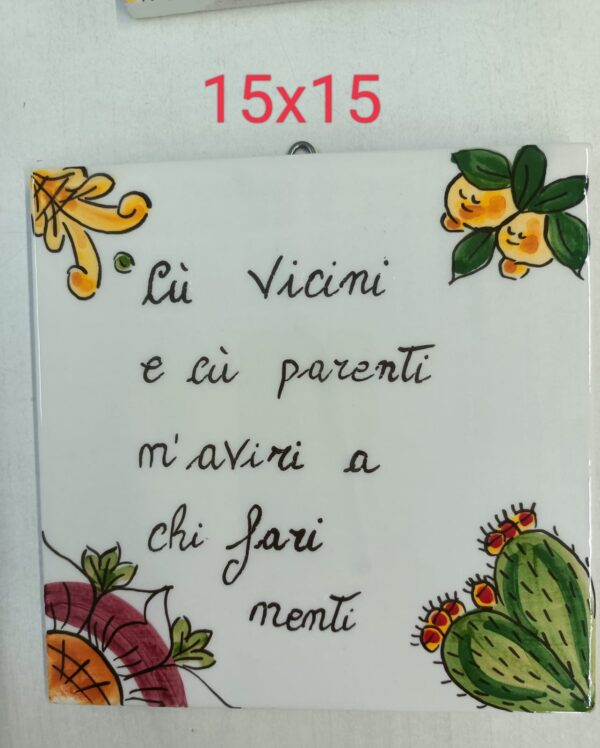 15x15
Cù vicini
e cù parenti
n'aviri a
chi fari
nenti